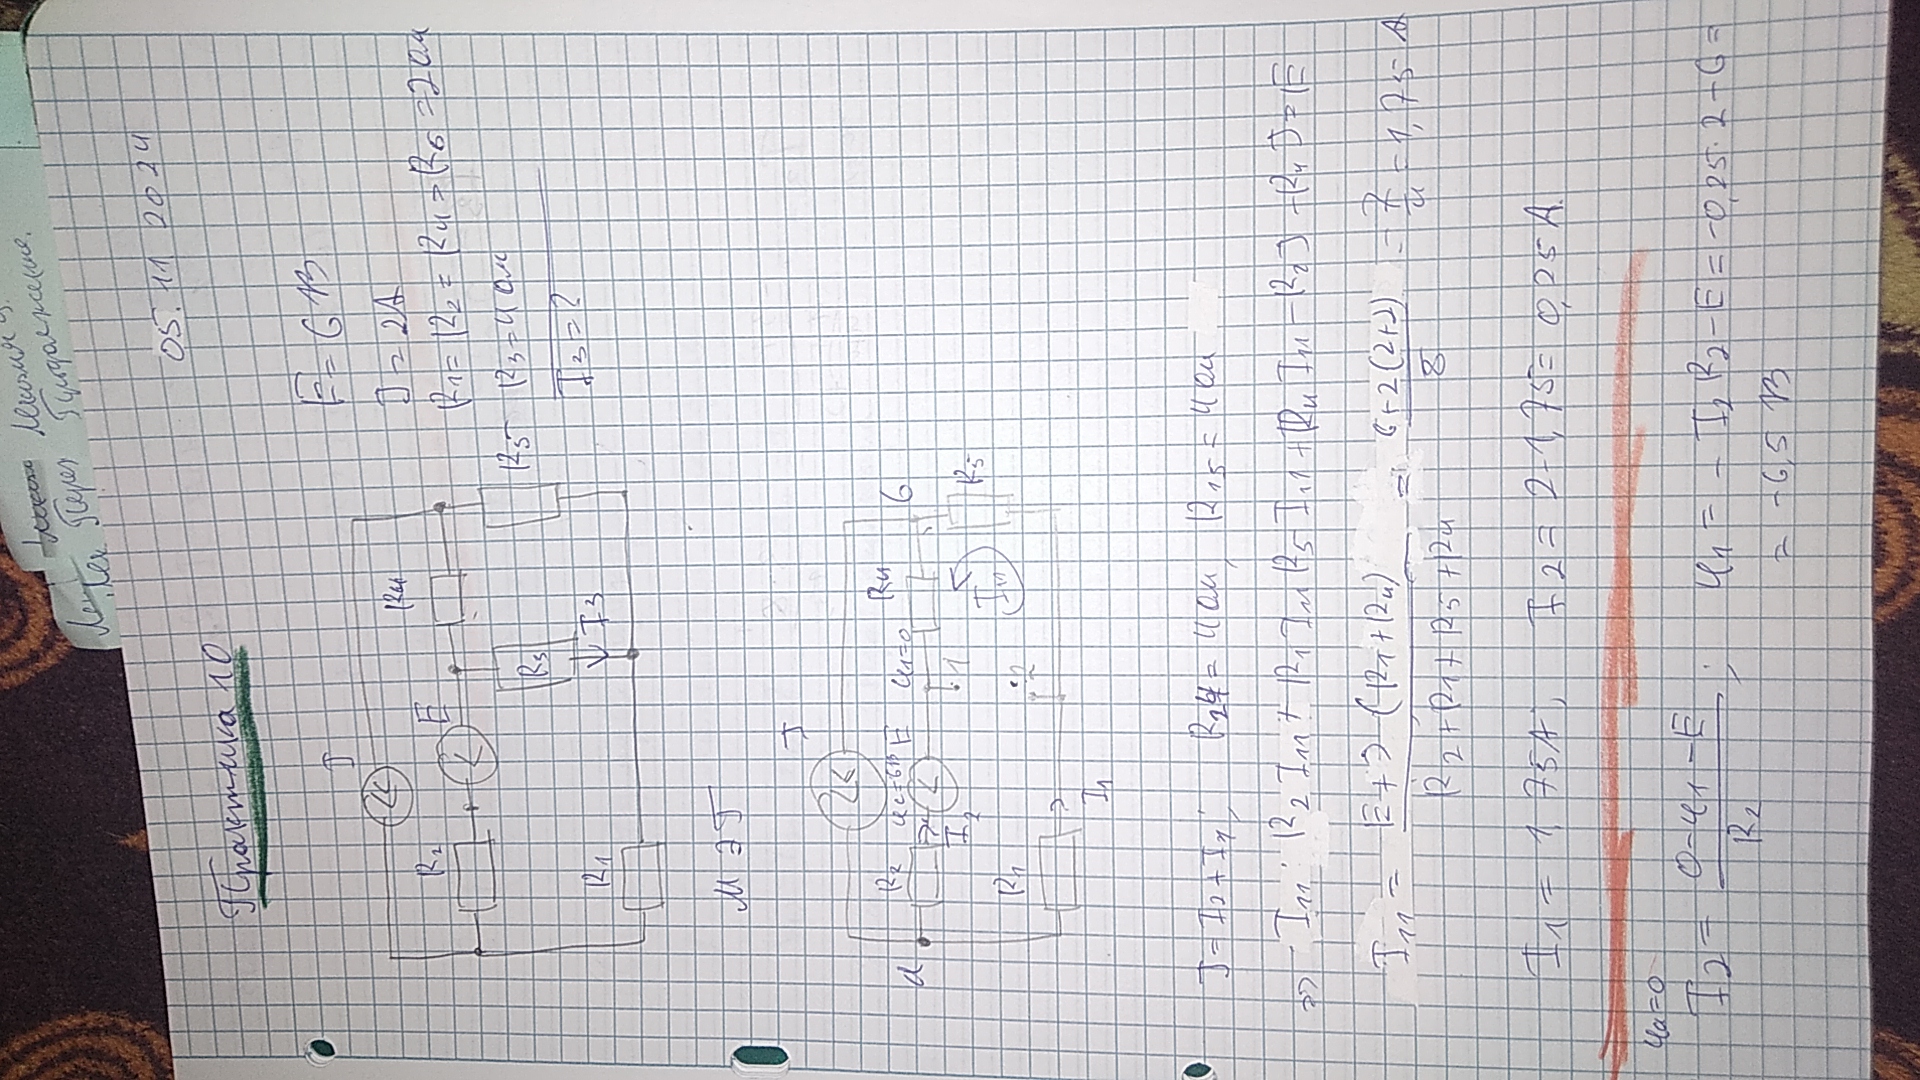 Лекция
Лек Перех Продолжение.
05.11 2024
Практика 10
J
E = 6 В
J = 2А
R1 = R2 = R4 = R5 = 2 Ом
R3 = 4 Ом
I3 = ?
R2
E
R4
R3
I3
R5
R1
МЭГ
J
a
R2
φc=6В
E
φ1=0
R4
б
I2
1
I11
R5
R1
2
I1
J = I2 + I1; R24 = 4 Ом, R15 = 4 Ом
=> I11: R2 I11 + R1 I11 R5 I11 + R4 I11 - R2 J - R4 J = E
I11 = E + J (R1 + R4) / R2 + R1 + R5 + R4 = 6+2(2+2) / 8 = 7/4 = 1,75 А
I1 = 1,75А; I2 = 2-1,75 = 0,25 А.
φa=0
I2 = 0-φ1-E / R2; φ1 = - I2 R2 - E = -0,25·2-6 =
= -6,5 В